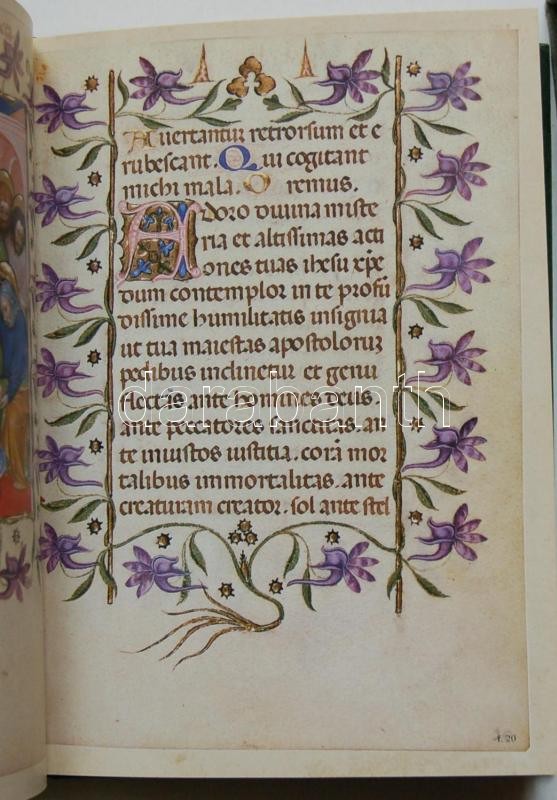 Avertantur retrorsum et e
rubescant. Qui cogitant
michi mala. Oremus.
Adoro divina miste
ria et altissimas acti
ones tuas ihesu xpe
dum contemplor in te profu
dissime humilitatis insignia
ut tua maiestas apostolorum
pedibus inclinetur et genu
flectis ante homines deus.
ante peccatores sanctitas. an
te iniustos iustitia. cora mor
talibus immortalitas. ante
creaturam creator. sol ante stel
darabanth
f. 20